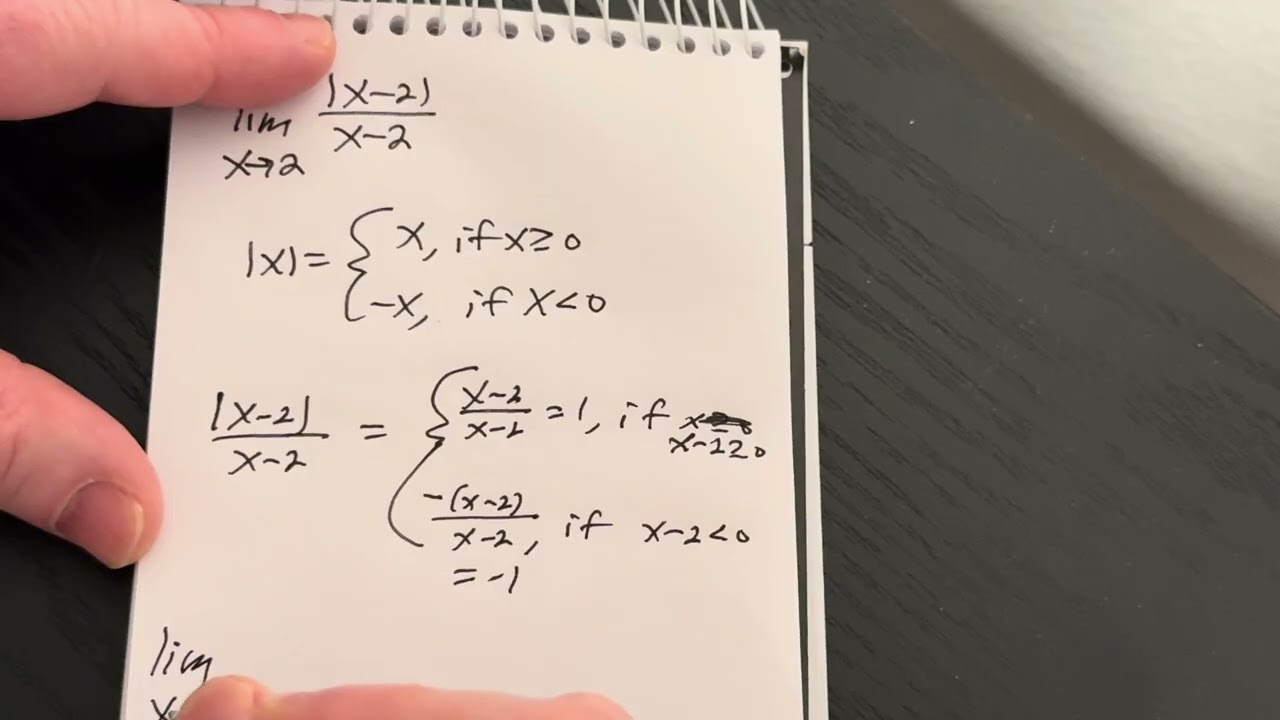 lim |x-2|/x-2
x→2
|x| = { x, if x ≥ 0
-x, if x < 0
|x-2|/x-2 = { x-2/x-2 = 1, if
x-2≥0
-(x-2)/x-2, if x-2<0
= -1
lim
x